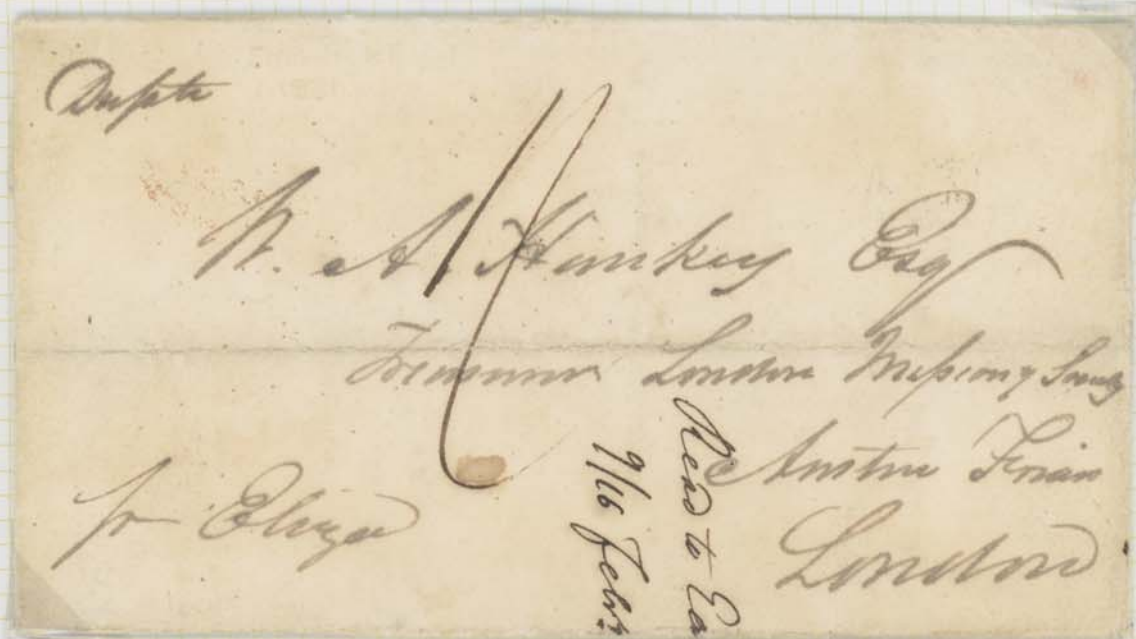 Dupte
W. A. Hankey Esq
Treasurer London Missiony Society
Austin Friars
London
pr Eliza
Read to
9/16 Feby